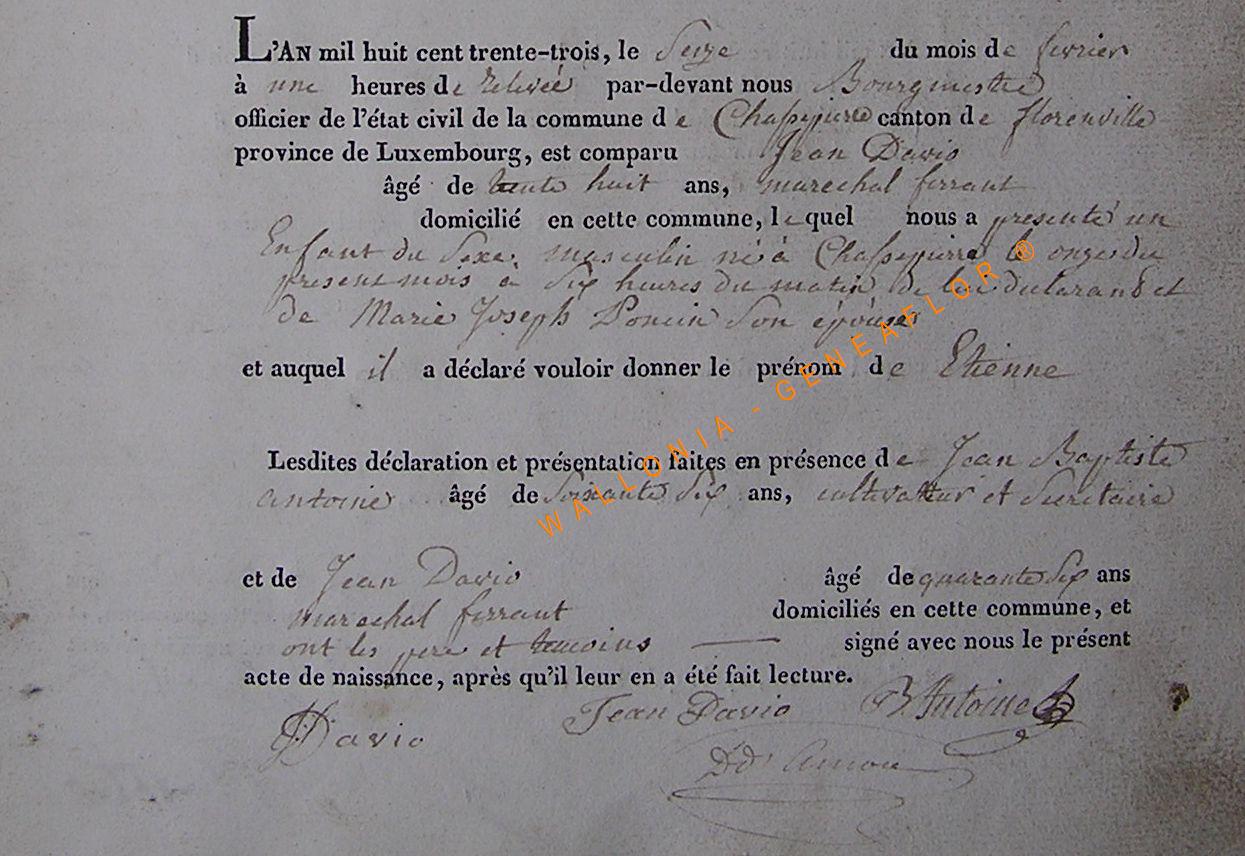 L'AN mil huit cent trente-trois, le Seize du mois de fevrier
à une heures de relevée par-devant nous Bourgmestre
officier de l'état civil de la commune de Chassepierre canton de florenville
province de Luxembourg, est comparu Jean Davio
âgé de trente huit ans, marechal ferrant
domicilié en cette commune, lequel nous a presenté un
Enfant du Sexe masculin né à Chassepierre le onze du
present mois à Six heures du matin de lui declarand et
de Marie Joseph Poncin Son épouse
et auquel il a déclaré vouloir donner le prénom de Etienne
Lesdites déclaration et présentation faites en présence de Jean Baptiste
antoine âgé de Soixante Six ans, cultivateur et Secretaire
et de Jean Davio âgé de quarante Six ans
marechal ferrant domiciliés en cette commune, et
ont les pere et temoins signé avec nous le présent
acte de naissance, après qu'il leur en a été fait lecture.
JDavio Jean Davio B Antoine
WALLONIA - GENEAFLOR ®